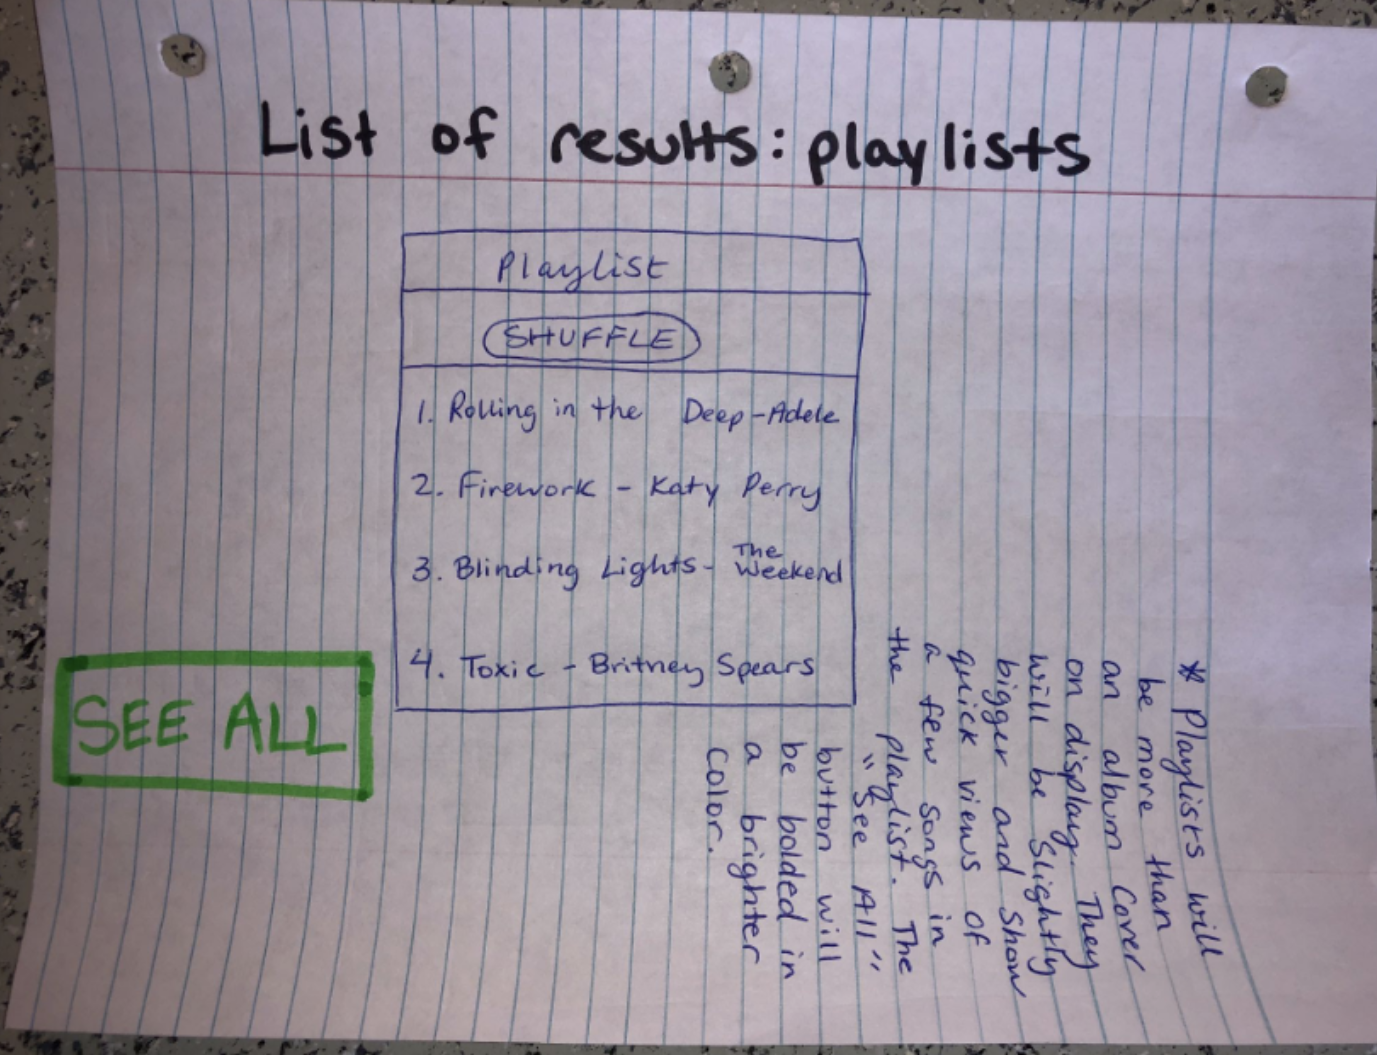 List of results: playlists
Playlist
SHUFFLE
1. Rolling in the Deep - Adele
2. Firework - Katy Perry
3. Blinding Lights - The Weekend
4. Toxic - Britney Spears
SEE ALL
* Playlists will
be more than
an album cover
on display. They
will be slightly
bigger and show
quick views of
a few songs in
the playlist. The
"See All"
button will
be bolded in
a brighter
color.